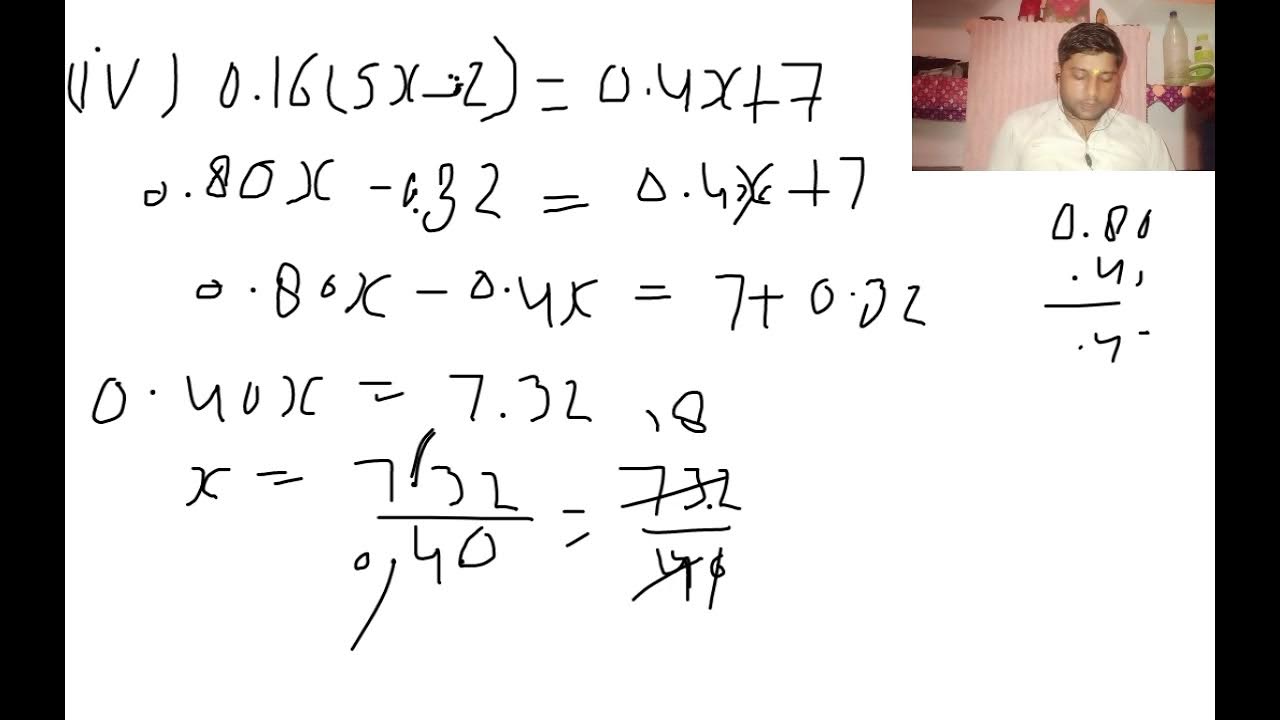 (iv) 0.16(5x-2) = 0.4x+7
0.80x - 0.32 = 0.4x+7
0.80x - 0.4x = 7+0.32
0.40x = 7.32
x = 7.32/0.40 = 732/40
.8
0.80
.4
.4